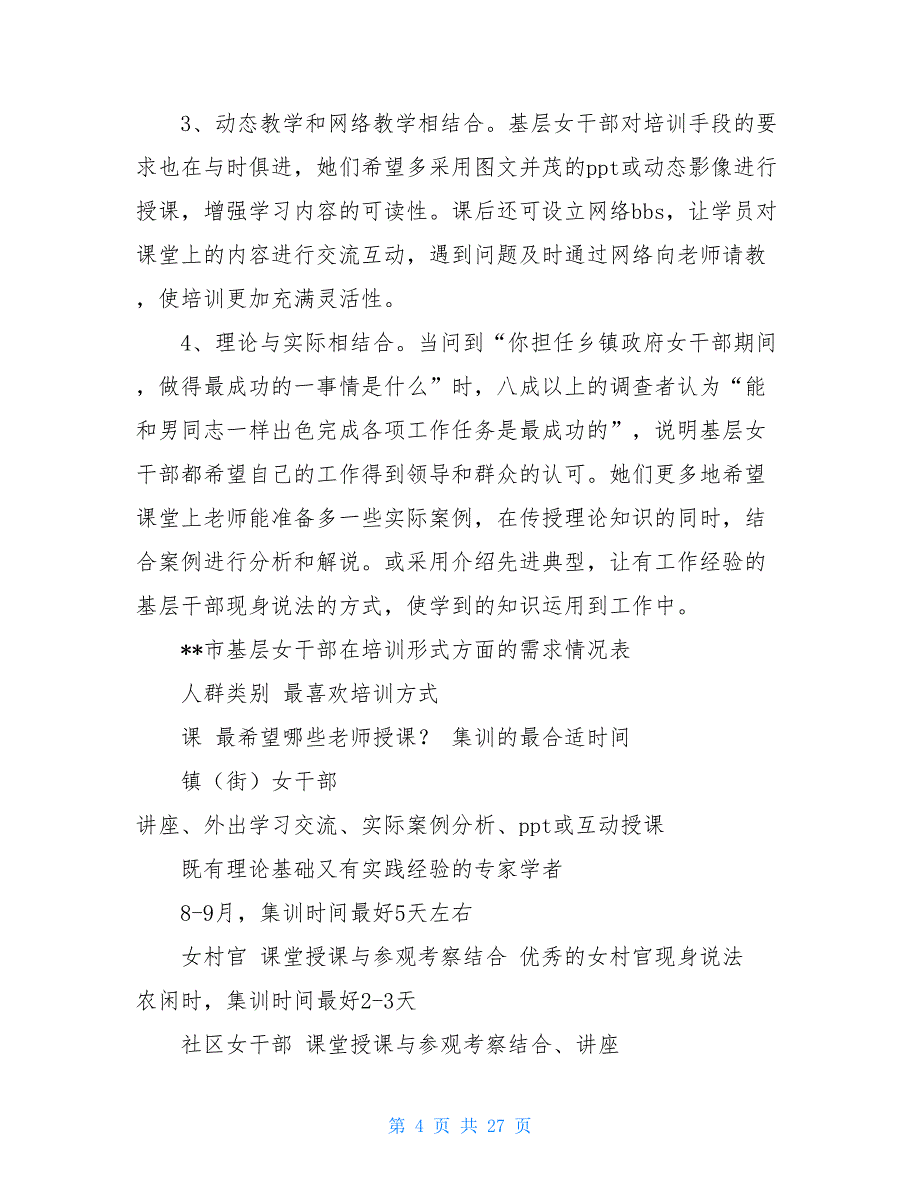 3、动态教学和网络教学相结合。基层女干部对培训手段的要
求也在与时俱进，她们希望多采用图文并茂的ppt或动态影像进行
授课，增强学习内容的可读性。课后还可设立网络bbs，让学员对
课堂上的内容进行交流互动，遇到问题及时通过网络向老师请教
，使培训更加充满灵活性。
4、理论与实际相结合。当问到“你担任乡镇政府女干部期间
，做得最成功的一事情是什么”时，八成以上的调查者认为“能
和男同志一样出色完成各项工作任务是最成功的”，说明基层女
干部都希望自己的工作得到领导和群众的认可。她们更多地希望
课堂上老师能准备多一些实际案例，在传授理论知识的同时，结
合案例进行分析和解说。或采用介绍先进典型，让有工作经验的
基层干部现身说法的方式，使学到的知识运用到工作中。
**市基层女干部在培训形式方面的需求情况表
人群类别 最喜欢培训方式
课 最希望哪些老师授课？ 集训的最合适时间
镇（街）女干部
讲座、外出学习交流、实际案例分析、ppt或互动授课
既有理论基础又有实践经验的专家学者
8-9月，集训时间最好5天左右
女村官 课堂授课与参观考察结合 优秀的女村官现身说法
农闲时，集训时间最好2-3天
社区女干部 课堂授课与参观考察结合、讲座
第 4 页 共 27 页